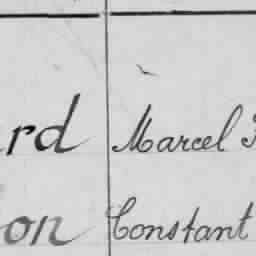 rd Marcel
on Constant